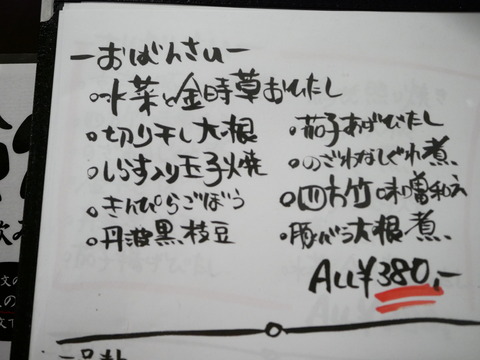 ーおばんさいー
・水菜と金時草おひたし
・切り干し大根
・しらす入り玉子焼
・きんぴらごぼう
・丹波黒枝豆
・茄子あげびたし
・のざわなしぐれ煮
・四方竹味噌和え
・豚バラ大根煮
All¥380,-